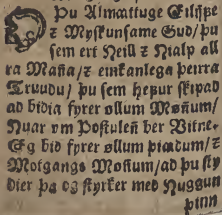 O Þu Almættuge Eilijfe
ꝛ Myskunsame Gud/ þu
sem ert Heill ꝛ Hialp all
ra Maña/ ꝛ einkanlega þeirra
Truudu/ þu sem hefur skipad
ad bidia fyrer øllum Møñum/
Huar vm Postuleñ ber Vitne.
Eg bid fyrer øllum þiædum/ ꝛ
Motgangs Moñum/ ad þu sty
dier þa og styrker med Huggun
þinn